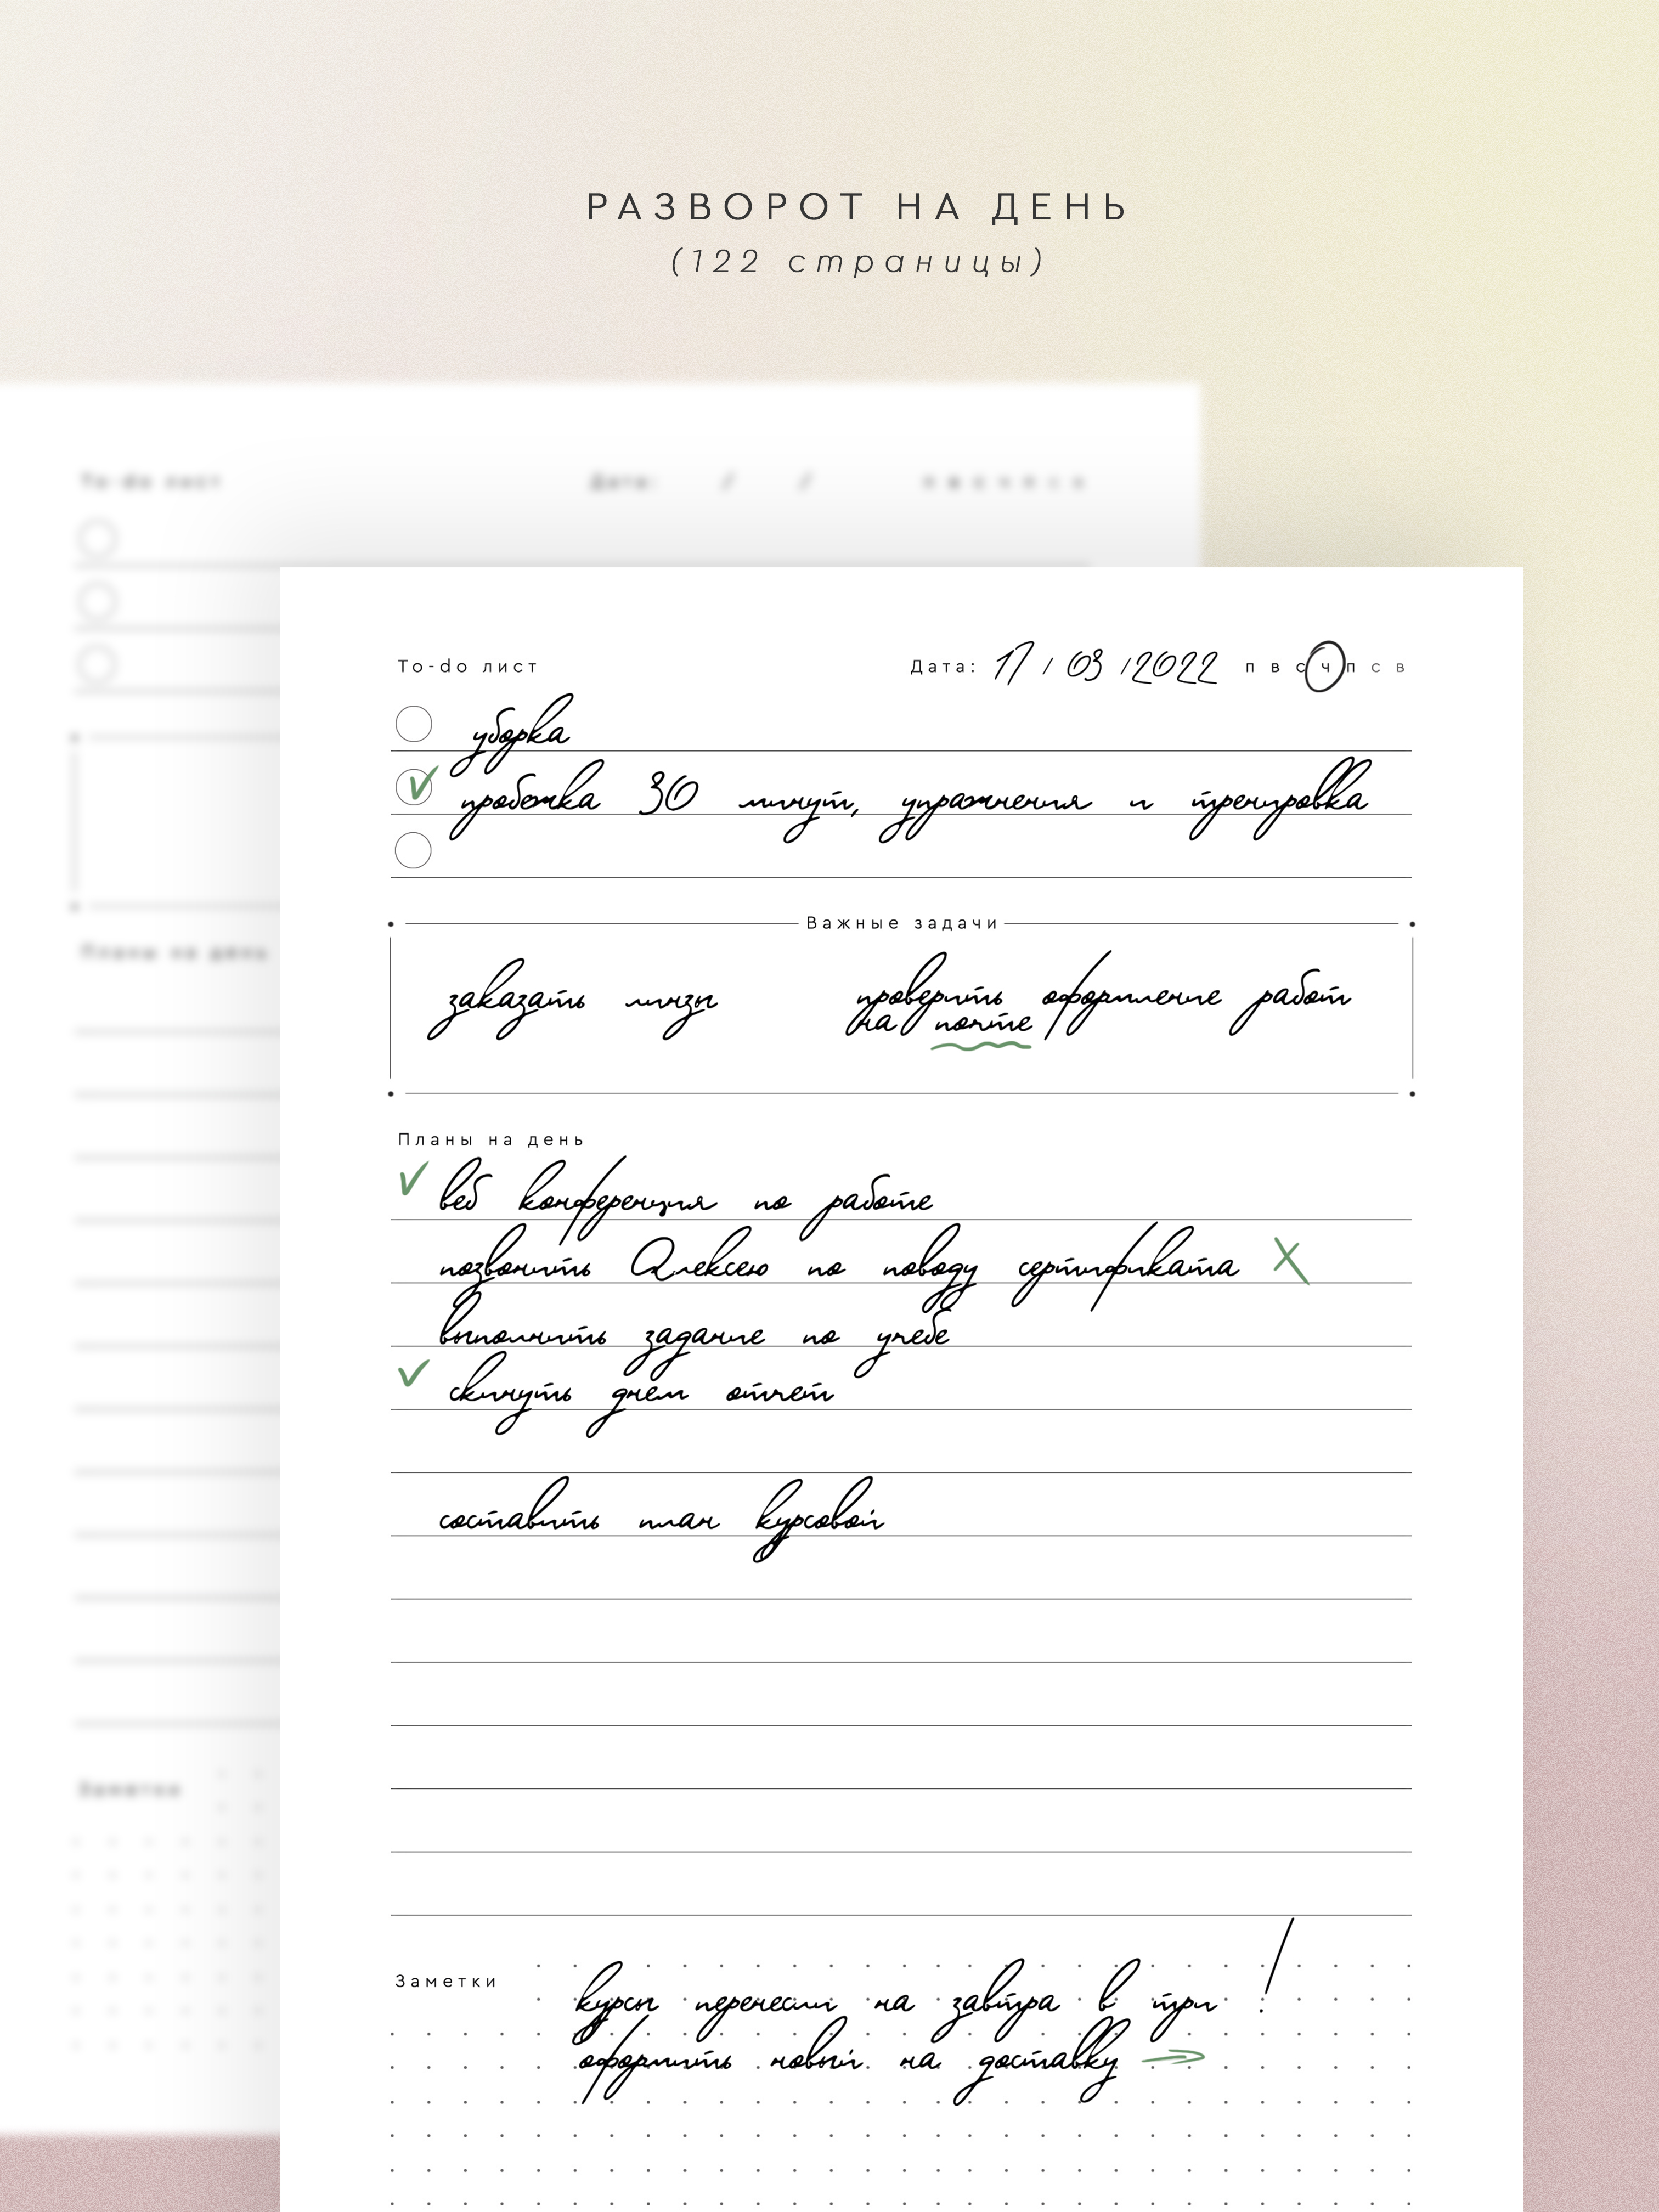 РАЗВОРОТ НА ДЕНЬ
(122 страницы)
To-do лист
Дата: / /
п в с ч п с в
To-do лист
Дата: 17 / 03 / 2022 п в с ч п с в
уборка
пробежка 30 минут, упражнения и тренировка
Важные задачи
заказать линзы
проверить оформление работ
на почте
Планы на день
веб конференция по работе
позвонить Алексею по поводу сертификата
выполнить задание по учебе
скинуть днем отчет
составить план курсовой
Заметки
курсы перенесли на завтра в три !
оформить новый на доставку
Планы на день
Заметки